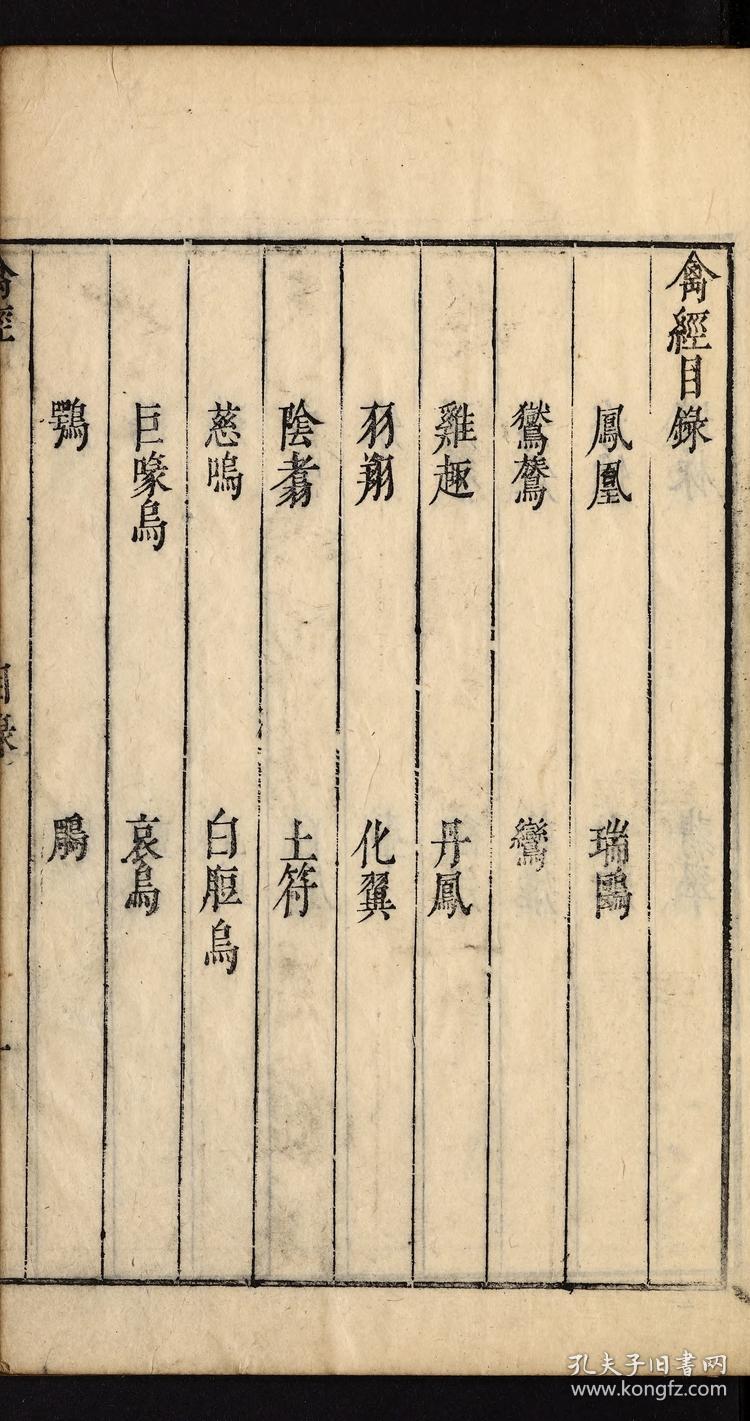 禽經目錄
鳳凰 瑞鶠
鸑鷟 鸞
雞趣 丹鳳
羽翔 化翼
陰翥 土符
慈嗚 白脰烏
巨喙烏 哀烏
鶚 鵰
禽經 目錄 一
孔夫子旧书网
www.kongfz.com